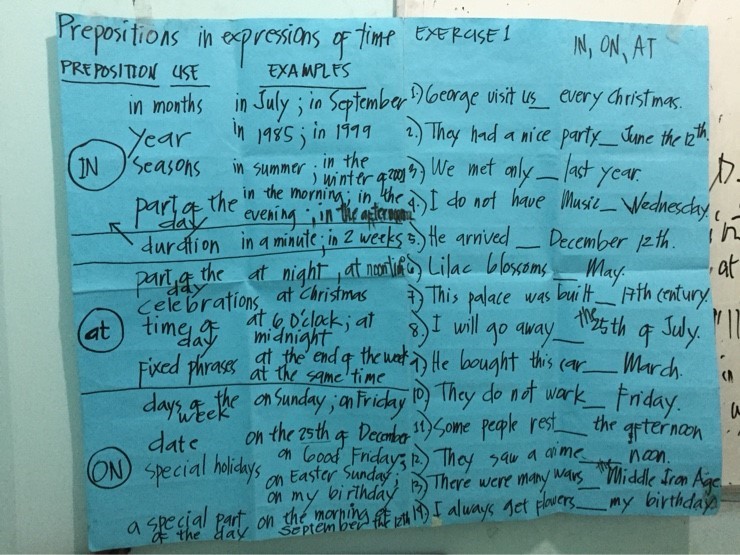 Prepositions in expressions of time
PREPOSITION USE EXAMPLES
IN
in months in July ; in September
Year in 1985 ; in 1999
Seasons in summer ; in the
winter of 2001
part of the in the morning ; in the
day evening ; in the afternoon
duration in a minute ; in 2 weeks
at
part of the at night , at noontime
day
celebrations at Christmas
time of at 6 O'clock ; at
day midnight
Fixed phrases at the end of the week
at the same time
ON
days of the on Sunday ; on Friday
week
date on the 25th of December
special holidays on Good Friday ;
on Easter Sunday ;
on my birthday
a special part on the morning of
of the day September the 12th
EXERCISE 1
IN, ON, AT
1.) George visit us__ every Christmas.
2.) They had a nice party__ June the 12th.
3.) We met only __ last year.
4.) I do not have Music__ Wednesday.
5.) He arrived __ December 12th.
6.) Lilac blossoms __ May.
7.) This palace was built__ 17th century.
8.) I will go away__ the 25th of July.
9.) He bought this car__ March.
10.) They do not work__ Friday.
11.) Some people rest__ the afternoon
12.) They saw a crime__ noon.
13.) There were many wars__ the Middle Iron Age
14.) I always get flowers__ my birthday
at
in